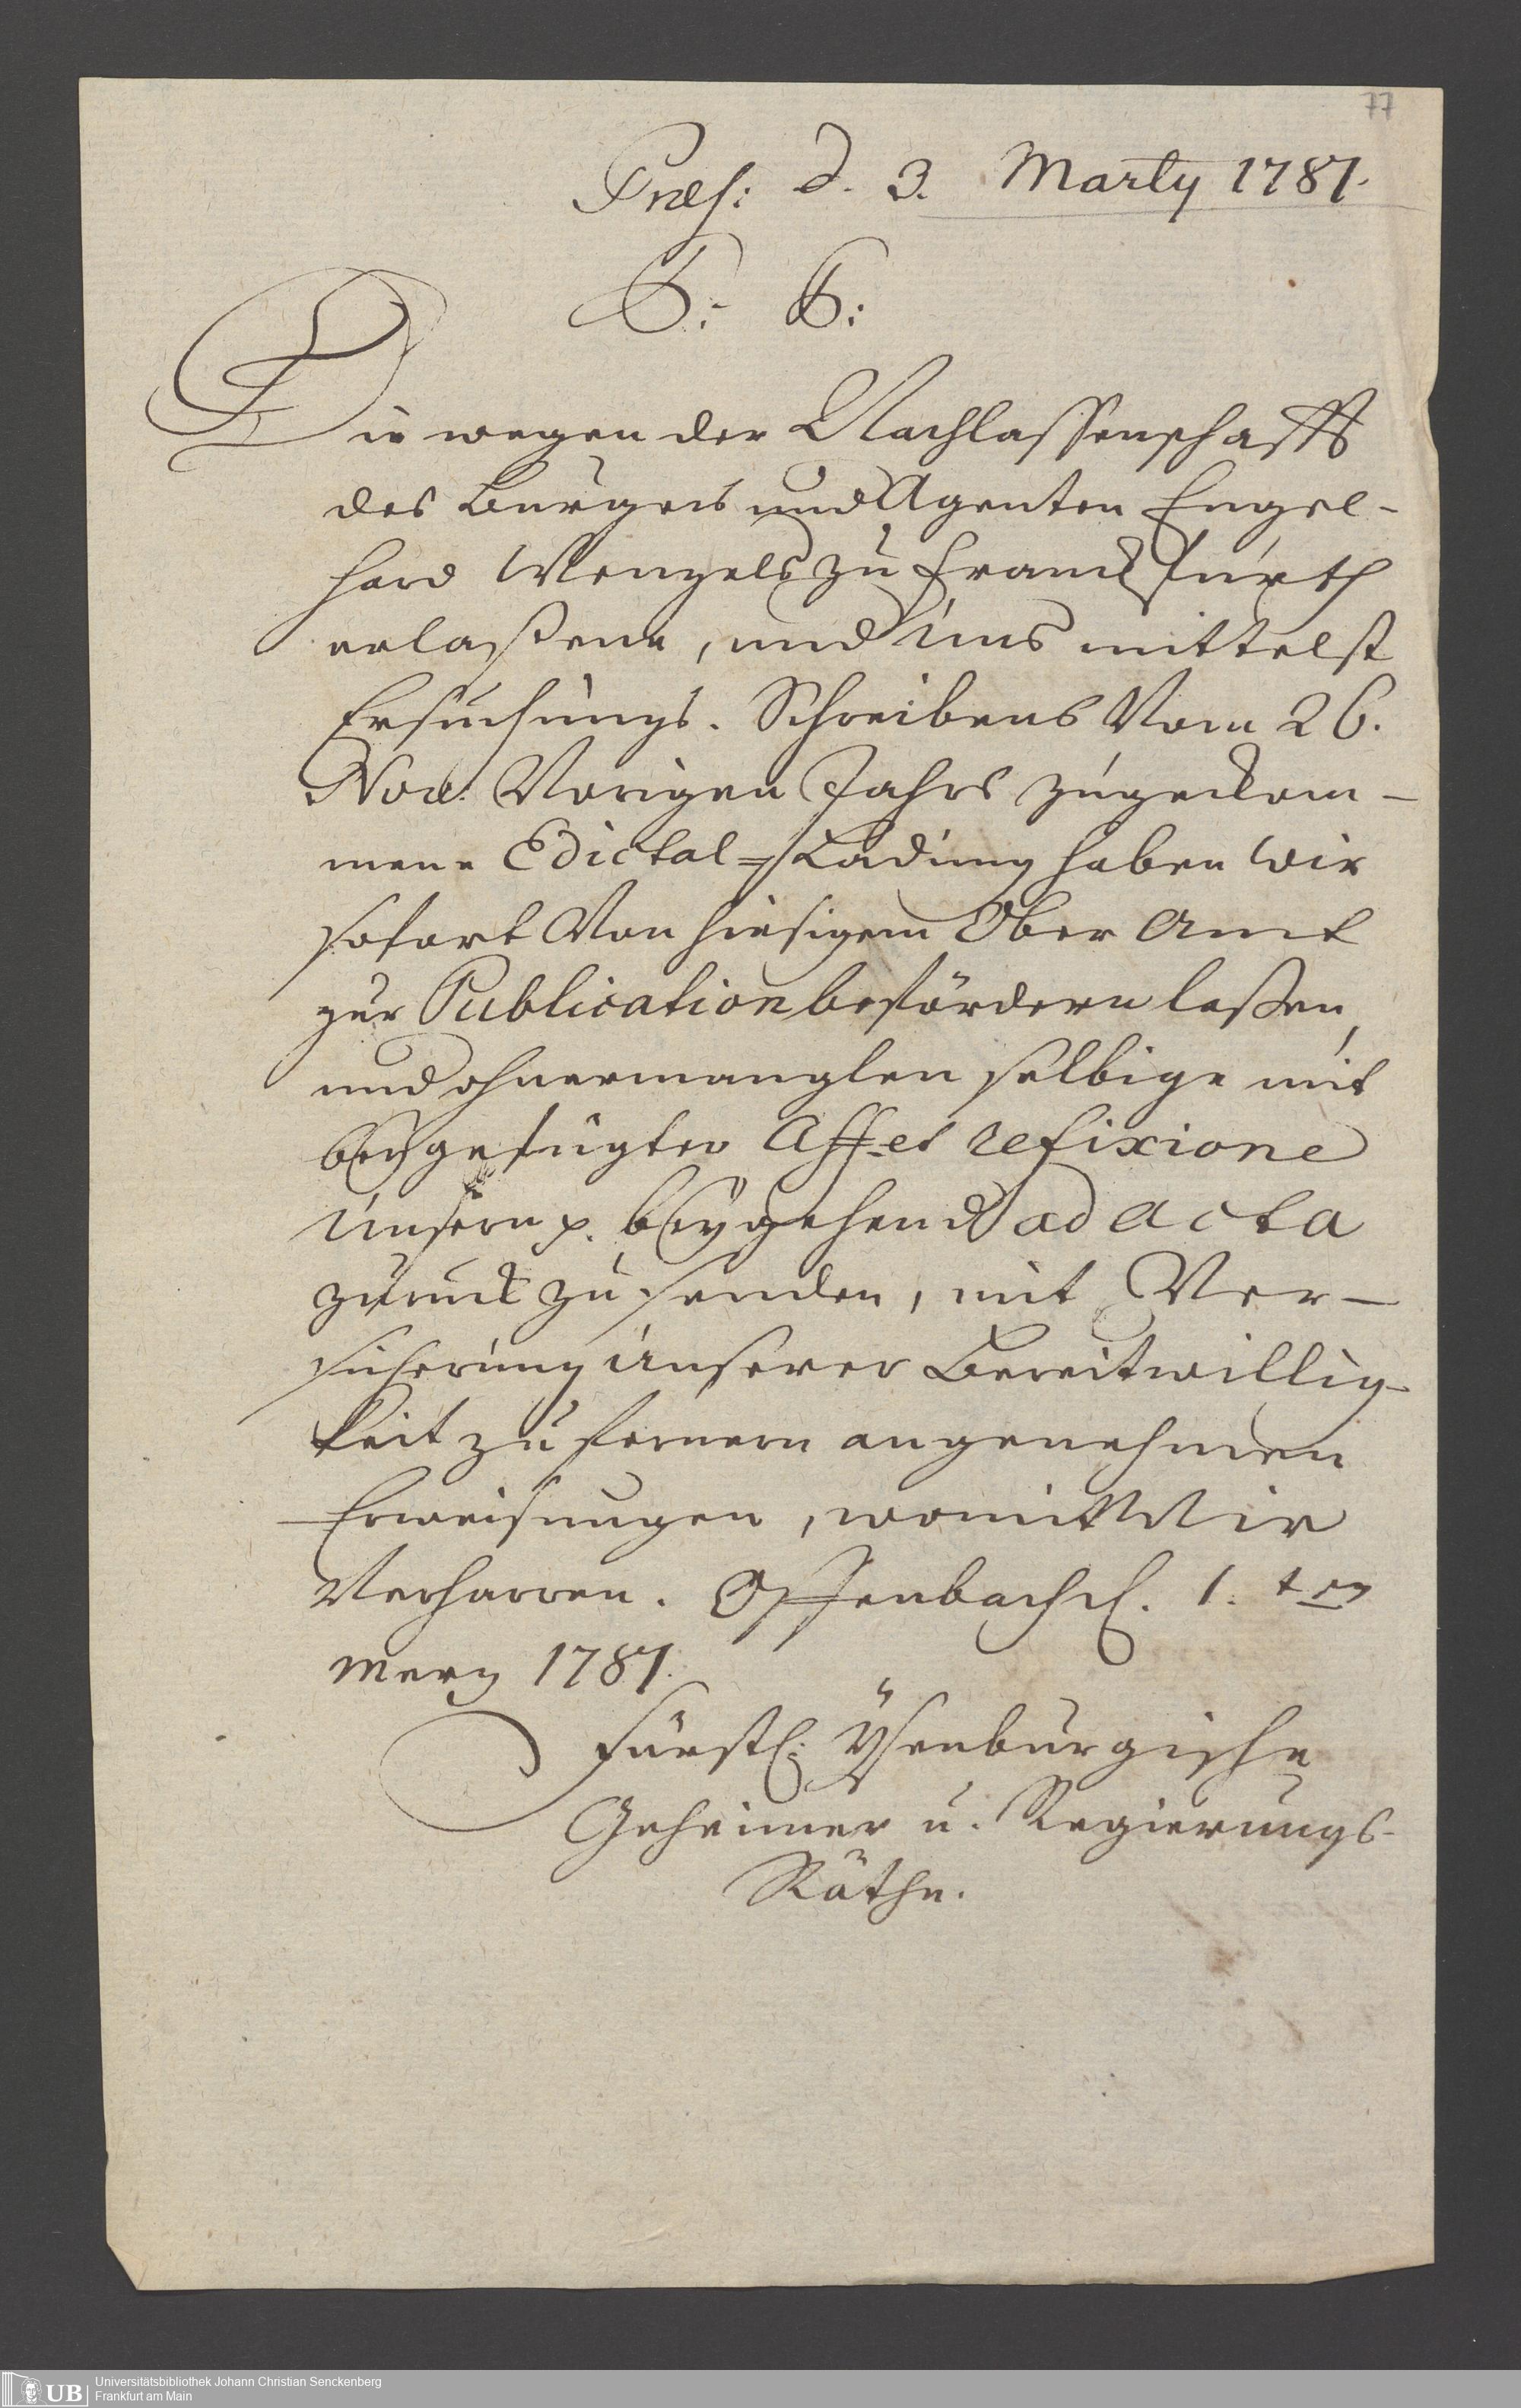 77
Præs: d. 3. Marty 1787.
P: P:
Die wegen der Nachlassenschafft
des Burgers und Agenten Engel-
hard Wenzels zu Franckfurth
erlaßene, und uns mittelst
Ersuchungs-Schreibens Vom 26.
Nov: Vorigen Jahrs zugekom-
mene Edictal-Ladung haben wir
sofort Von hiesigem Ober Amt
zur Publication befördern laßen,
und ohnermanglen selbige mit
beygefügter Aff- et refixione
unsern p. beygehend ad acta
zuruck zu senden, mit Ver-
sicherung unserer Bereitwillig-
keit zu fernern angenehmen
Erweisungen, womit Wir
Verharren. Offenbach d. 1.ten
Merz 1787.
Fürstl: Ysenburgische
Geheimer u. Regierungs-
Räthe.
UB
Universitätsbibliothek Johann Christian Senckenberg
Frankfurt am Main